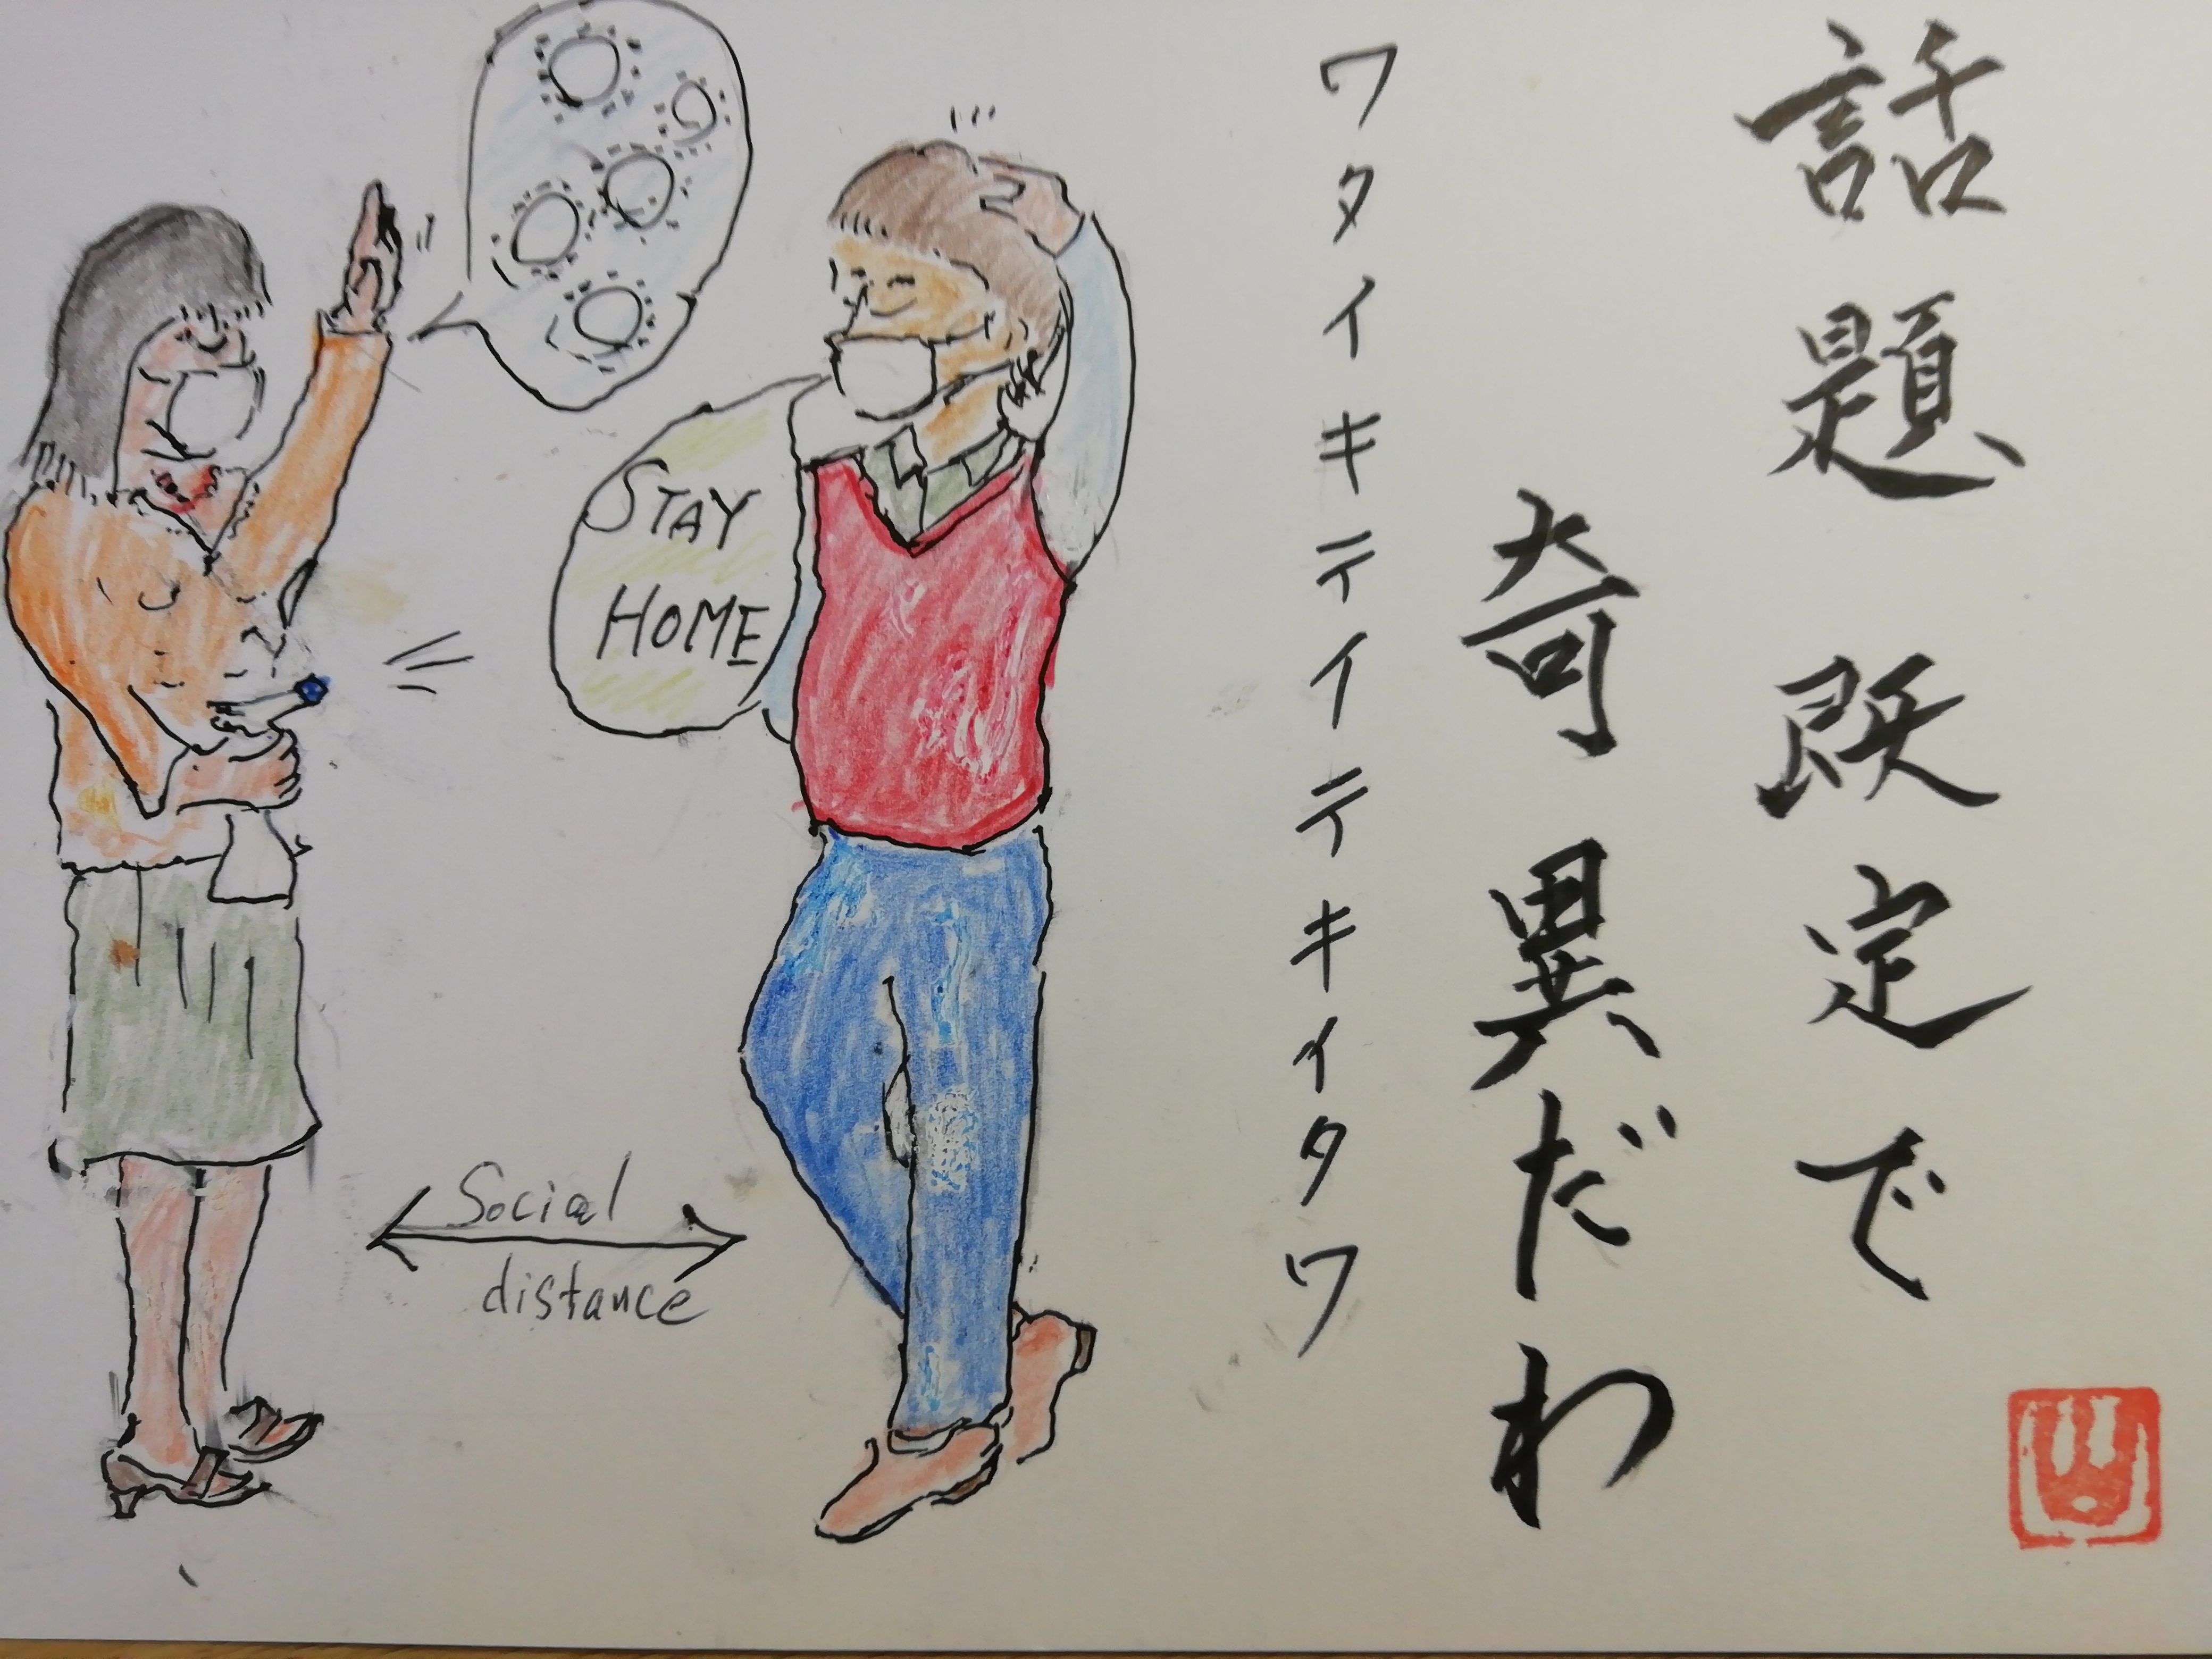 話題 既定で
奇異だわ
ワタイキテイテキイタワ
STAY
HOME
Social
distance